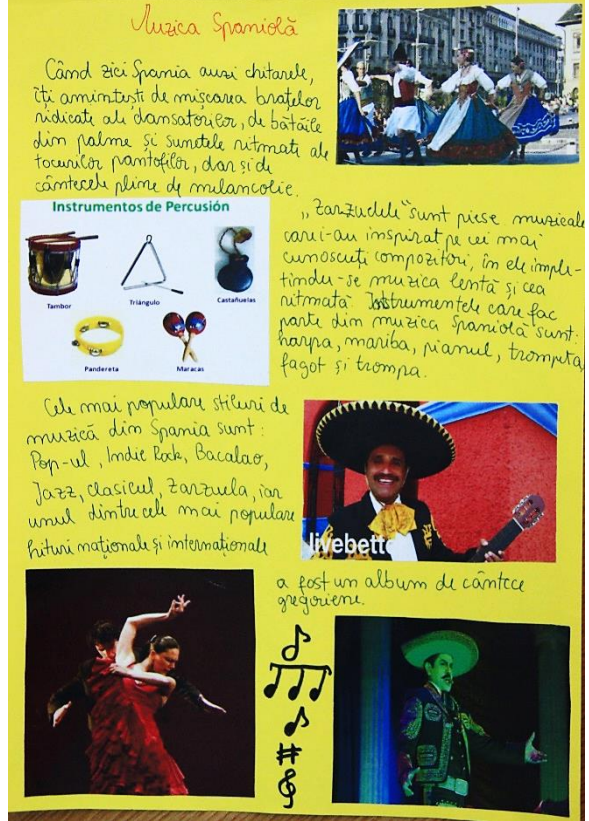 Muzica Spaniolă
Când zici Spania auzi chitarele,
îți amintești de mișcarea brațelor
ridicate ale dansatorilor, de bătăile
din palme și sunetele ritmate ale
tocurilor pantofilor, dar și de
cântecele pline de melancolie.
Instrumentos de Percusión
Tambor
Triángulo
Castañuelas
Pandereta
Maracas
„Zarzuelele" sunt piese muzicale
care i-au inspirat pe cei mai
cunoscuți compozitori, în ele împle-
tindu-se muzica lentă și cea
ritmată. Instrumentele care fac
parte din muzica Spaniolă sunt:
harpa, mariba, pianul, trompeta,
fagot și trompa.
Cele mai populare stiluri de
muzică din Spania sunt:
Pop-ul, Indie Rock, Bacalao,
Jazz, clasicul, Zarzuela, iar
unul dintre cele mai populare
hituri naționale și internaționale
livebette
a fost un album de cântece
gregoriene.